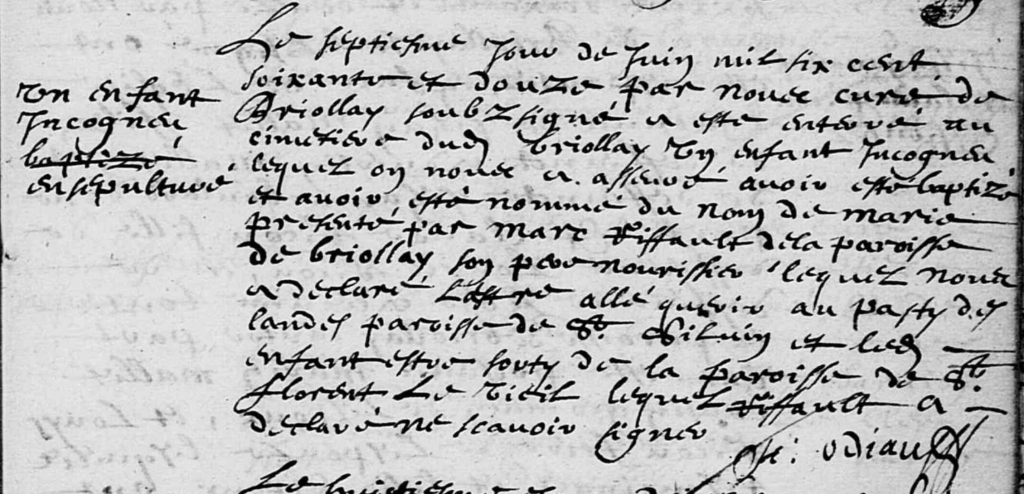 Un enfant
Incogneu
baptizé
ensepulturé
Le septiesme Jour de Juin mil six cent
soixante et douze par nous curé de
Briollay soubzsigné a esté enterré au
cimetiere dud Briollay Un enfant Incogneu
lequel on nous a asseuré avoir esté baptizé
et avoir esté nommé du nom de marie
presenté par Marc Riffault de la paroisse
de briollay son pere nourissier lequel nous
a declaré l'estre allé querir au pasty des
landes paroisse de St Silvin et led
enfant estre sorty de la paroisse de St
florent Le Vieil lequel Riffault a
declaré ne scavoir signer
odiau
Le huictiesme